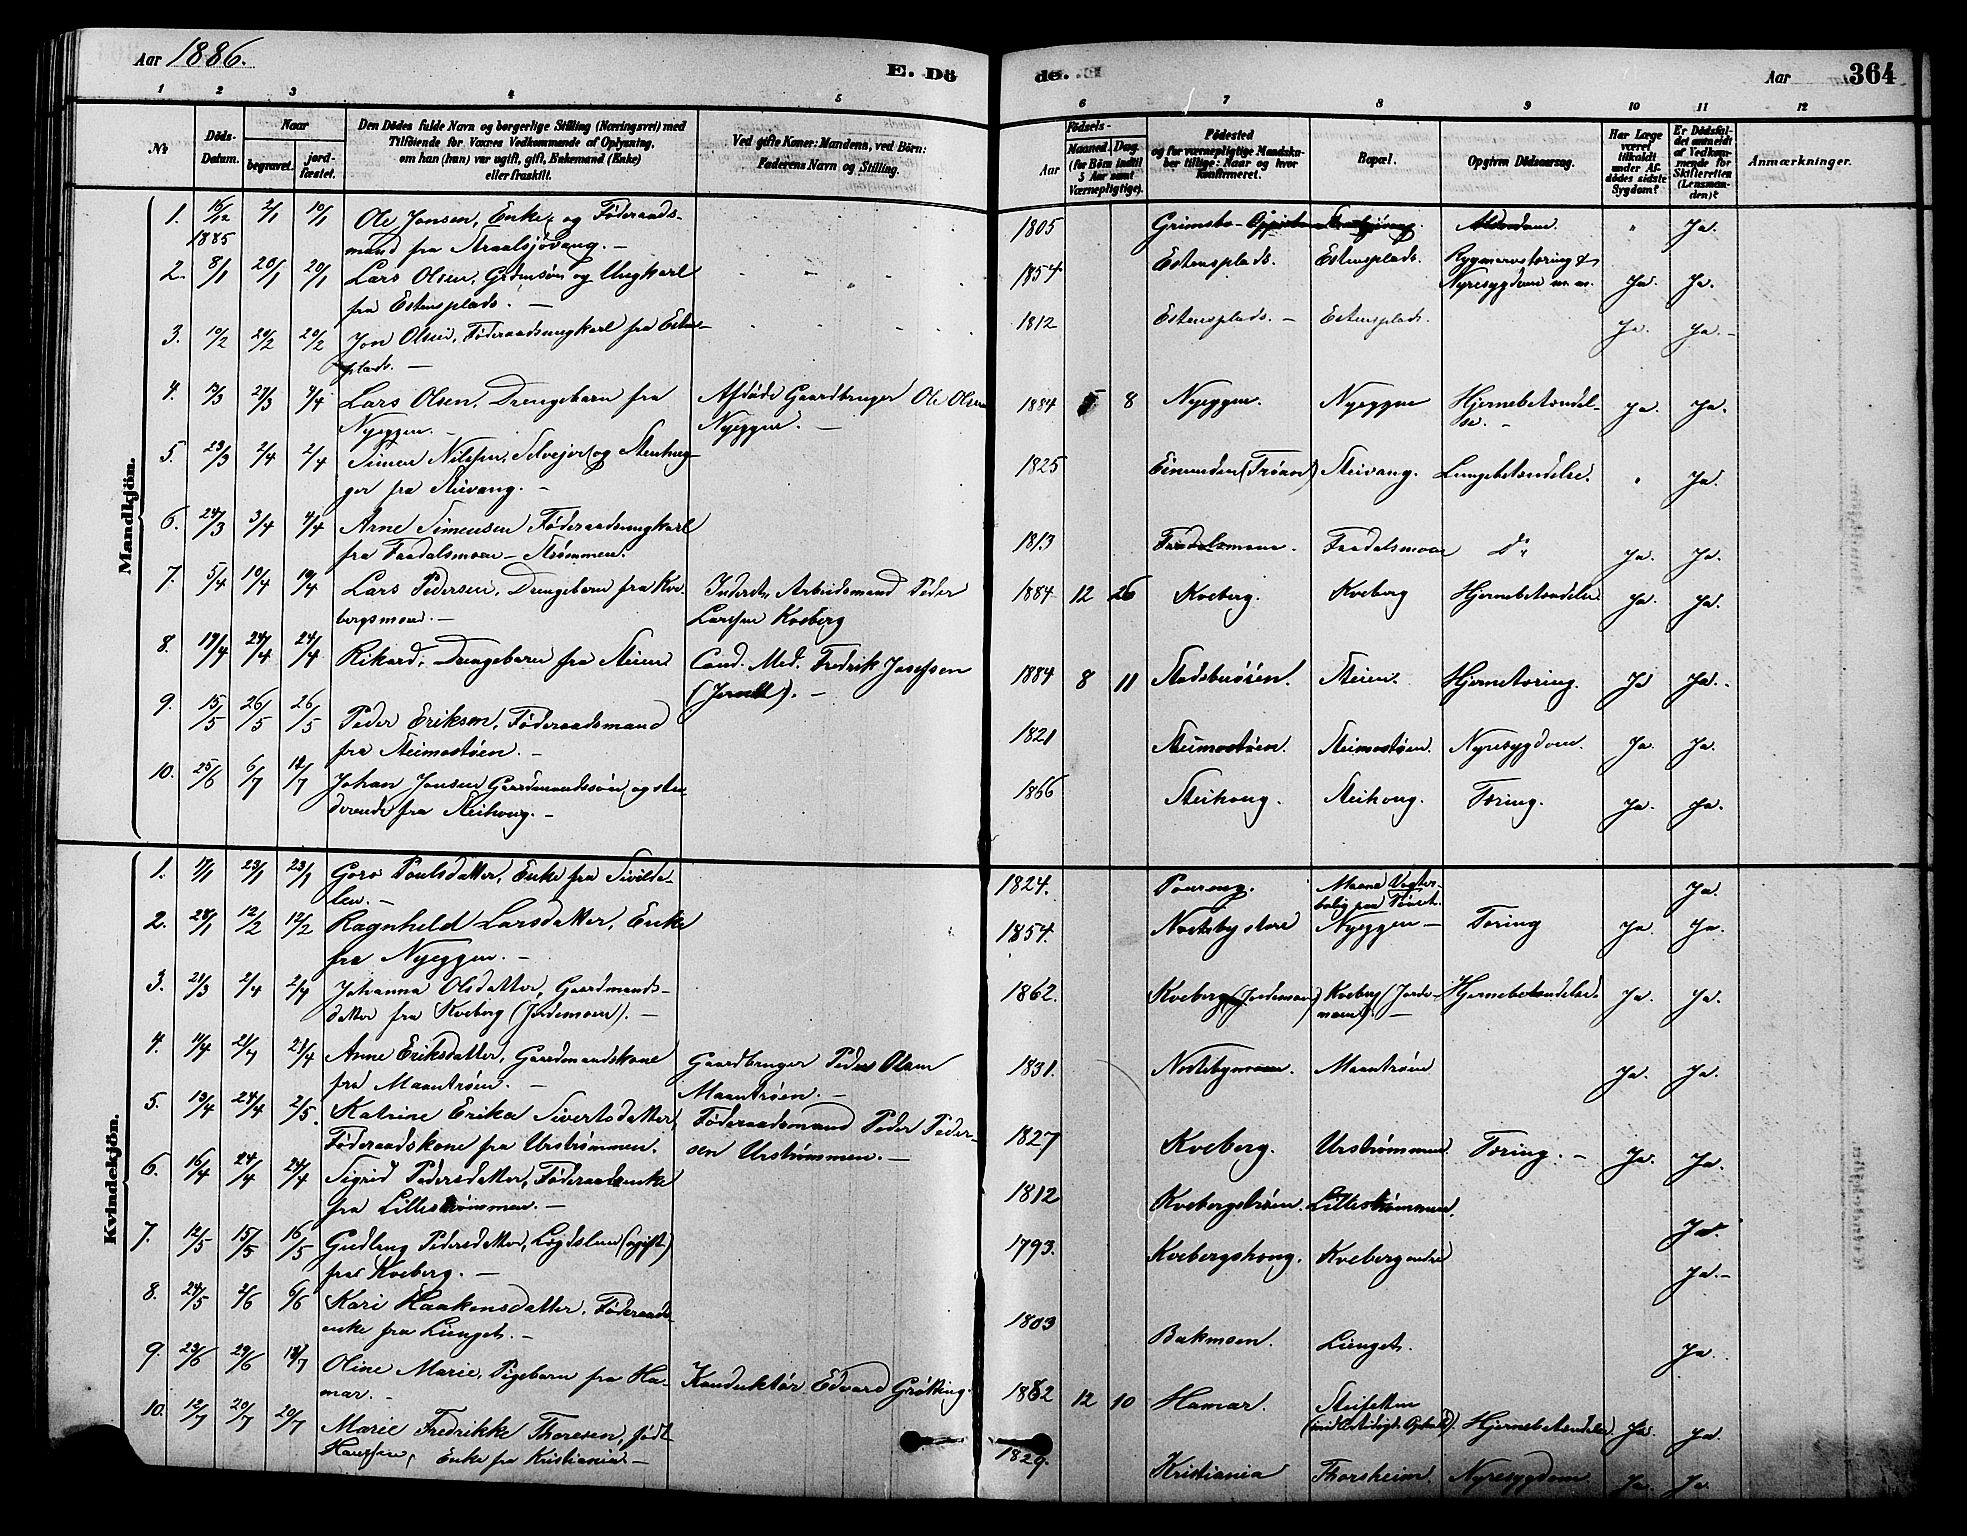 Aar 1886.
E. Dö
de.
Aar 364
1 2 3 4 5 6 7 8 9 10 11 12
No.
Döds-Datum.
Naar
begravet.
jord-fæstet.
Den Dödes fulde Navn og borgerlige Stilling (Næringsvei) med
Tilföiende for Voxnes Vedkommende af Oplysning,
om han (hun) var ugift, gift, Enkemand (Enke)
eller fraskilt.
Ved gifte Koner: Mandens, ved Börn:
Faderens Navn og Stilling.
Födsels-
Aar
Maaned. Dag.
(for Börn indtil
5 Aar samt
Værnepligtige).
Födested
og for værnepligtige Mandska-
ber tillige: Naar og hvor
konfirmeret.
Bopæl.
Opgiven Dödsaarsag.
Har Læge
været
tilkaldt
under Af-
dödes sidste
Sygdom?
Er Dödsfal-
det anmeldt
af Vedkom-
mende for
Skifteretten
(Lensman-
den)?
Anmærkninger.
Mandkjön.
1. 16/12 1885 2/1 10/1 Ole Jonsen, Enke. og Föderaads-
mand fra Straalsjövang. —
1805 Grimsbo Alderdom. " Ja.
2. 8/1 20/1 20/1 Lars Olsen, Grdmsön og Ungkarl
fra Estensplads. —
1854 Estensplads. Estensplads. Rygmarvstæring &
Nyresygdom m. m. Ja. Ja.
3. 10/2 20/2 20/2 Jon Olsen, Föderaadsungkarl fra Estens-
plads. —
1812 Estensplads. — Estensplads. Ja. Ja. —
4. 13/3 27/3 4/4 Lars Olsen, Drengebarn fra
Nyeggen. —
Afdöde Gaardbruger Ole Olsen
Nyeggen. —
1884 5 8 Nyeggen. Nyeggen Hjernebetændel-
se. — Ja. Ja.
5. 23/3 2/4 2/4 Simen Nilssen, Selveier og Stenhug-
ger fra Steivang. —
1825 Einunden (Tröan) Steivang. Lungebetændelse. " Ja.
6. 24/3 3/4 4/4 Arne Simensen Föderaadsungkarl
fra Faadalsmoen — Strömmen.
1813 Faadalsmoen. Faadalsmoen Do Ja. Ja.
7. 5/4 10/4 10/4 Lars Pedersen, Drengebarn fra Kve-
bergsmoen. —
Inderst, Arbeidsmand Peder
Larssen Kveberg
1884 12 26 Kveberg. Kveberg Hjernebetændelse Ja. Ja.
8. 19/4 24/4 24/4 Rikard, Drengebarn fra Steien
Cand. Med. Fredrik Josefsen
1884 8 11 Stadsbuöien. Steien. Hjernetæring. Ja Ja.
9. 15/5 26/5 26/5 Peder Eriksen, Föderaadsmand
fra Steimostöen. —
1821 Steimostöen. Steimostöen. Nyresygdom. Ja. Ja.
10. 25/6 6/7 12/7 Johan Jonsen Gaardmandssön og stu-
derende fra Steihaug. —
1866 Steihaug. Steihaug. Tæring. Ja. Ja.
Kvindekjön.
1. 17/1 23/1 23/1 Goro Poulsdatter, Enke fra Sivilda-
len. —
1824. Poureng. Maana Vogter-
bolig paa Ja.
2. 28/1 12/2 12/2 Ragnhild Larsdatter, Enke
fra Nyeggen. —
1854. Nordsby store Nyeggen — Tæring Ja. Ja.
3. 21/3 2/4 2/4 Johanna Olsdatter, Gaardmands-
datter fra Kveberg (Jordemoen). —
1862. Kveberg (Jordemoen) Kveberg (Jorde-
moen) — Hjernebetændelse. Ja. Ja.
4. 11/4 21/4 21/4 Anne Eriksdatter, Gaardmandskone
fra Maantröen. —
Gaardbruger Peder Olsen
Maantröen. —
1831. Nordsbymoen. Maantröen Ja. Ja.
5. 13/4 24/4 2/5. Katrine Erika Sivertsdatter,
Föderaadskone fra Urströmmen.
Föderaadsmand Peder Peder-
sen Urströmmen. —
1827 Kveberg. Urströmmen Tæring. — Ja. Ja.
6. 16/4 24/4 24/4 Sigrid Pedersdatter, Föderaadsenke
fra Lilleströmmen. —
1812 Kvebergströen. Lilleströmmen. Ja.
7. 12/5 15/5 16/5 Gudlaug Pedersdatter, Lægdslem (ugift)
fra Kveberg. —
1793. Kvebergshaug. Kveberg nedre Ja. —
8. 24/5 2/6 6/6 Kari Haakensdatter, Föderaads-
enke fra Lienget. —
1803 Bakmoen. Lienget. Ja.
9. 23/6 29/6 Oline Marie, Pigebarn fra Ha-
mar. —
Konduktör Edvard Grötting.
1882 12 10 Hamar. Steifetten
(midlertidigt Ophold). Hjernebetændelse Ja. Ja.
10. 12/7 20/7 20/7 Marie Fredrikke Thoresen, födt
Hanssen, Enke fra Kristiania. —
1829. Kristiania Thorsheim. Nyresygdom. Ja. Ja.